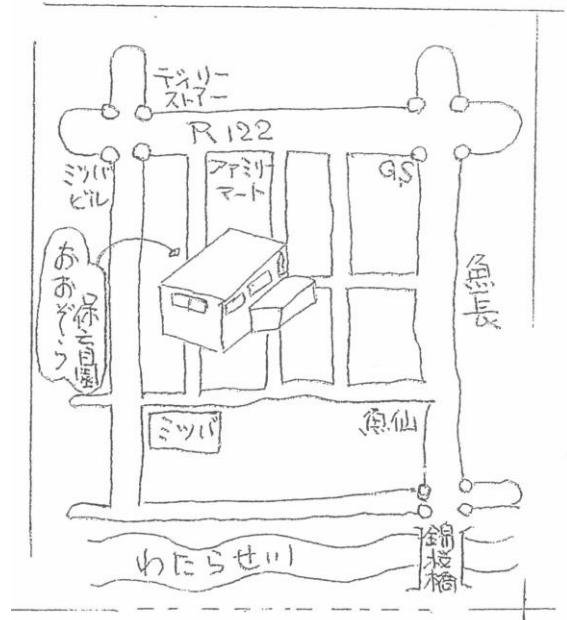 デイリー
ストアー
R122
ミツバ
ビル
ファミリー
マート
G.S
おおぞら
保育園
魚長
ミツバ
魚仙
わたらせ川
錦桜橋